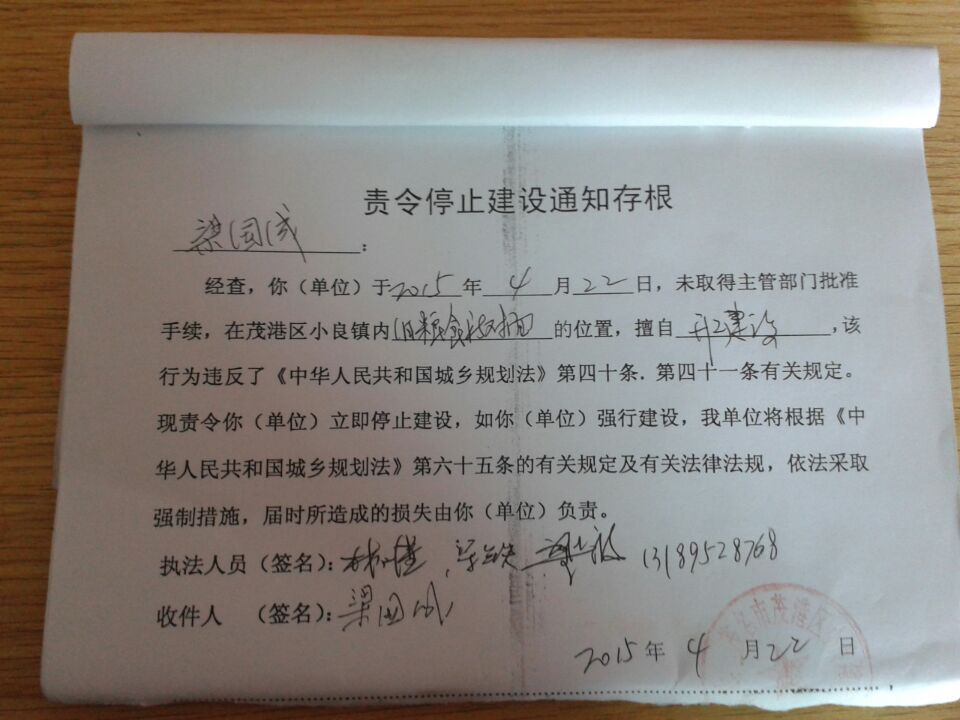 责令停止建设通知存根
梁国成：
经查，你（单位）于2015年4月22日，未取得主管部门批准
手续，在茂港区小良镇内旧粮食的位置，擅自开工建设，该
行为违反了《中华人民共和国城乡规划法》第四十条．第四十一条有关规定。
现责令你（单位）立即停止建设，如你（单位）强行建设，我单位将根据《中
华人民共和国城乡规划法》第六十五条的有关规定及有关法律法规，依法采取
强制措施，届时所造成的损失由你（单位）负责。
执法人员（签名）：13189528768
收件人 （签名）：梁国成
2015年4月22日
市茂港区